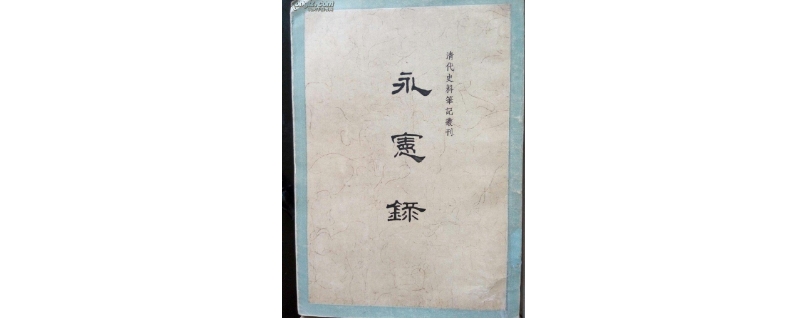 清代史料筆記叢刊
永憲錄